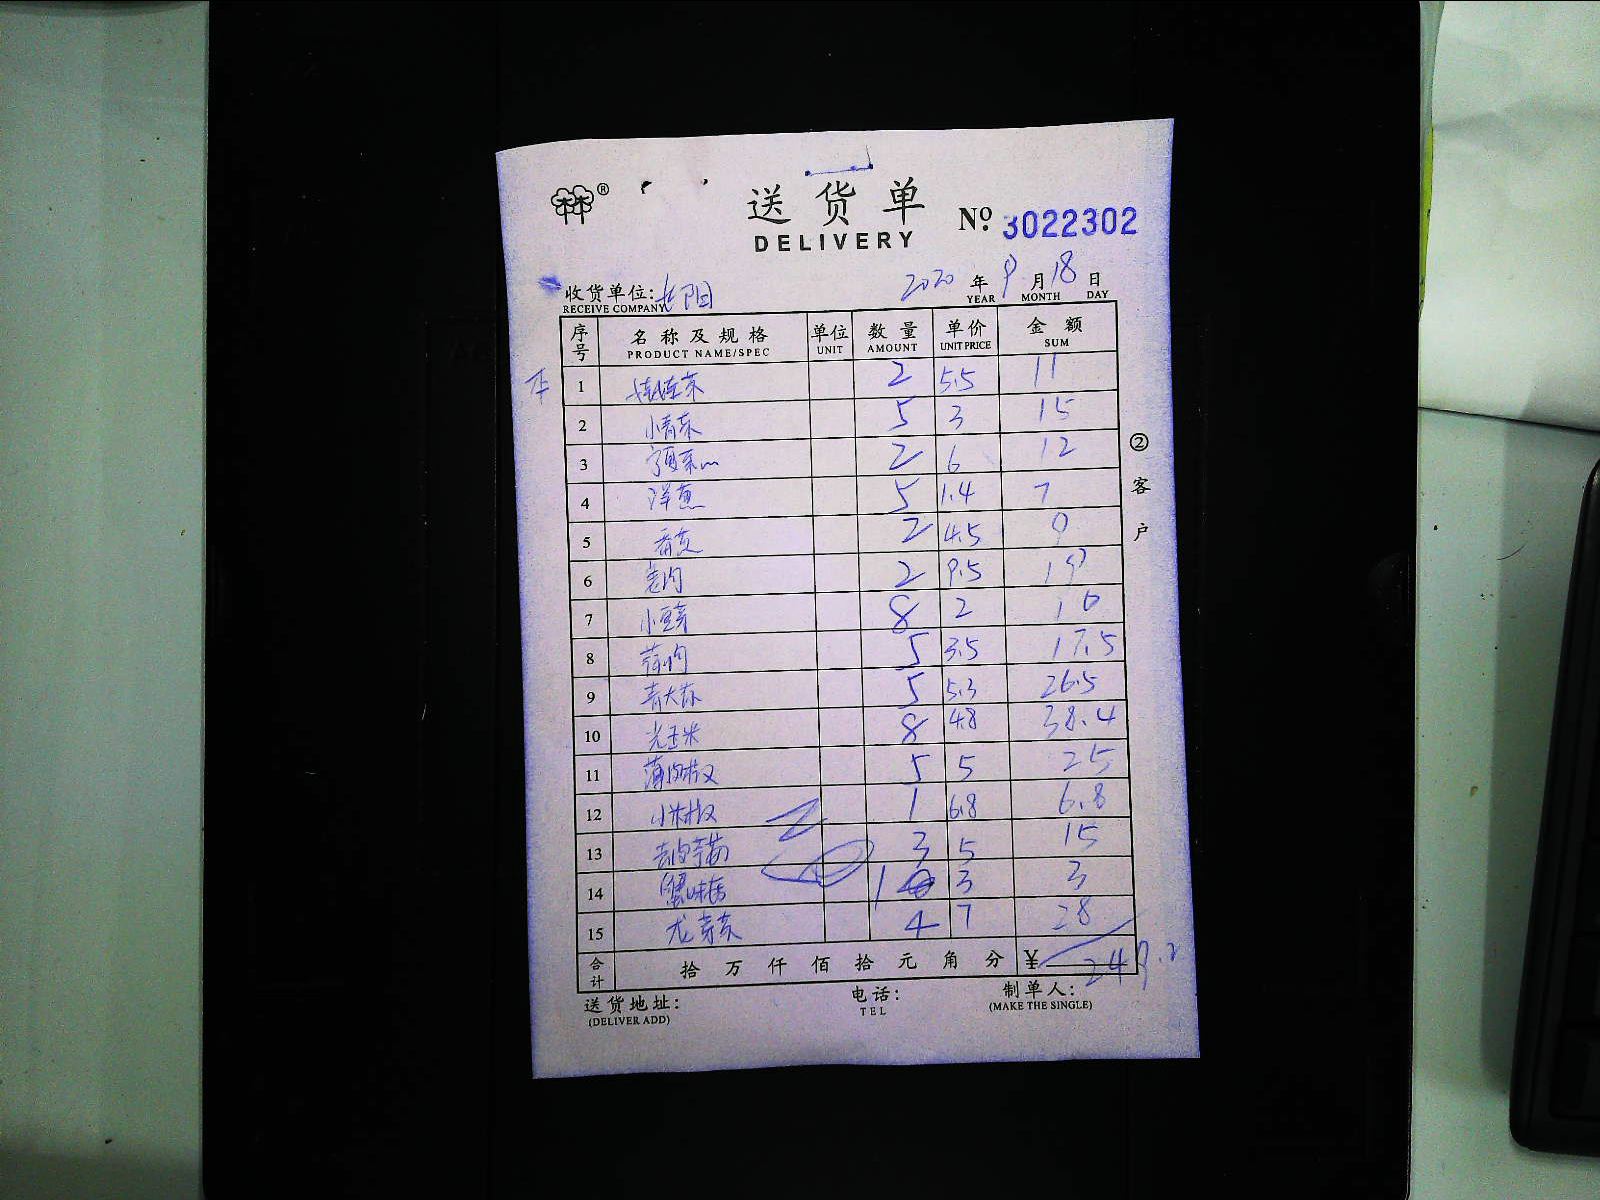 ®
送货单
DELIVERY
Nº 3022302
收货单位:
RECEIVE COMPANY
2020 年 9 月 18 日
YEAR MONTH DAY
序号 名称及规格 单位 数量 单价 金额
PRODUCT NAME/SPEC UNIT AMOUNT UNIT PRICE SUM
1 娃娃菜 2 5.5 11
2 小青菜 5 3 15
3 2 6 12
4 洋葱 5 1.4 7
5 2 4.5 9
6 2 9.5 19
7 小豆芽 8 2 16
8 5 3.5 17.5
9 青大蒜 5 5.3 26.5
10 光玉米 8 4.8 38.4
11 薄肉椒 5 5 25
12 小米椒 1 6.8 6.8
13 3 5 15
14 蟹味菇 1 3 3
15 龙芽菜 4 7 28
合计 拾 万 仟 佰 拾 元 角 分 ¥ 249.2
送货地址:
(DELIVER ADD)
电话:
TEL
制单人:
(MAKE THE SINGLE)
② 客户